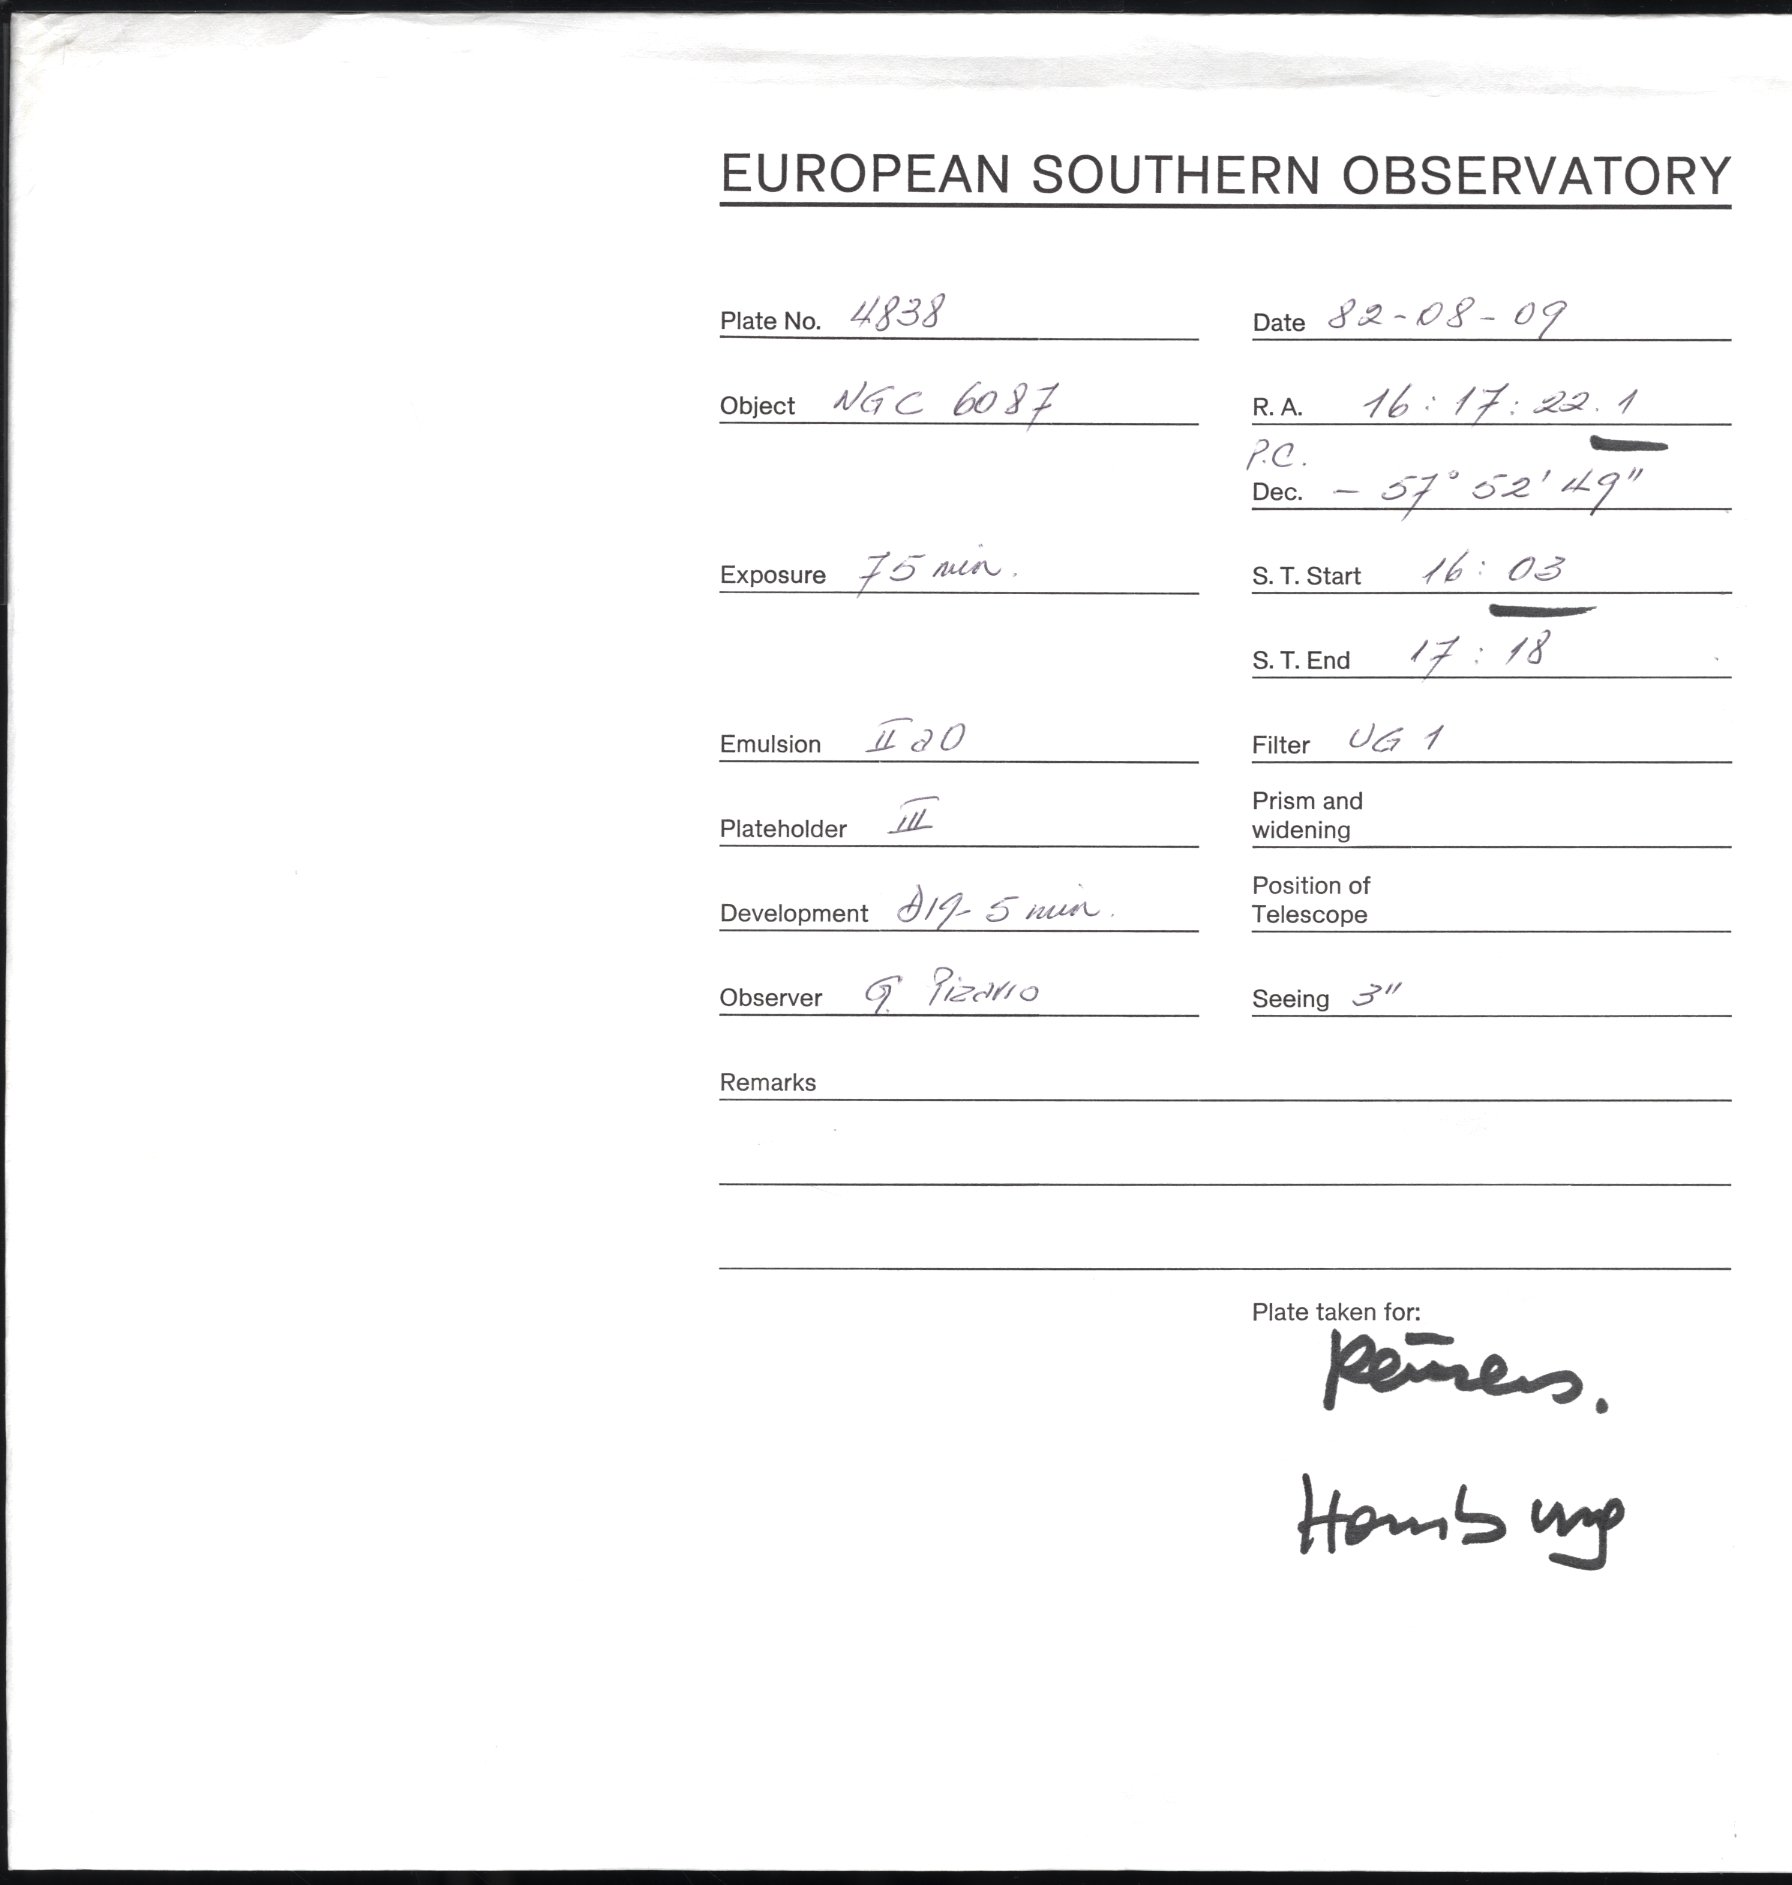 EUROPEAN SOUTHERN OBSERVATORY
Plate No. 4838
Date 82-08-09
Object NGC 6087
R. A. 16 : 17 : 22.1
P.C.
Dec. - 57° 52' 49"
Exposure 75 min.
S. T. Start 16 : 03
S. T. End 17 : 18
Emulsion II a O
Filter UG 1
Plateholder III
Prism and
widening
Development D19- 5 min.
Position of
Telescope
Observer G. Pizarro
Seeing 3"
Remarks
Plate taken for:
Hamburg